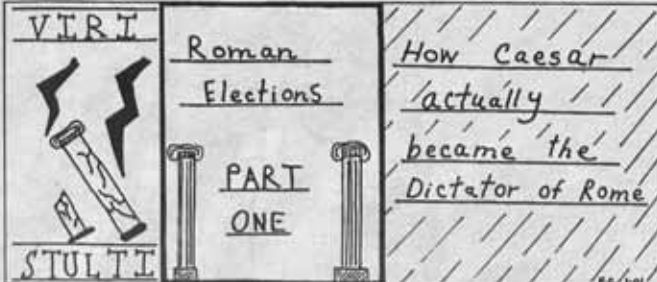 VIRI
STULTI
Roman
Elections
PART
ONE
How Caesar
actually
became the
Dictator of Rome